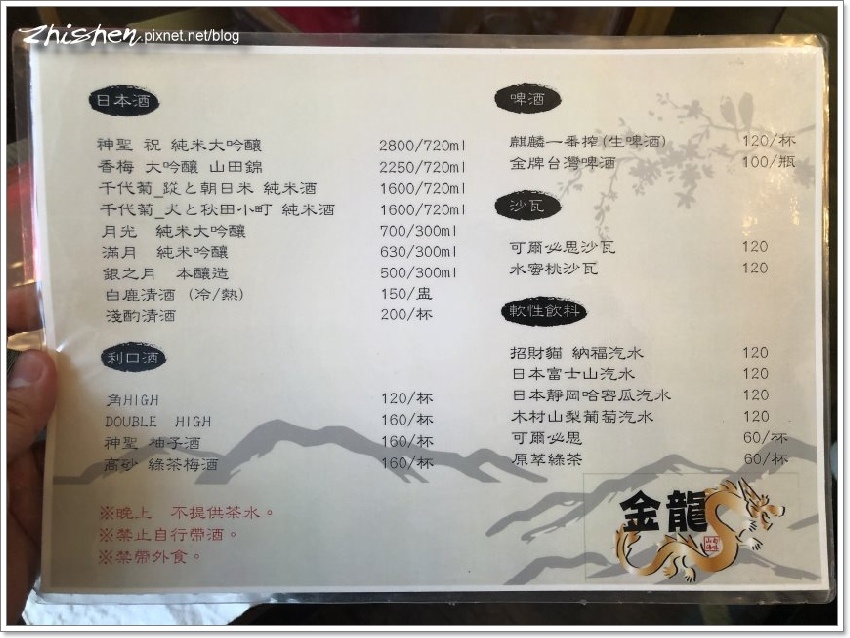 zhishen.pixnet.net/blog
日本酒
神聖 祝 純米大吟釀 2800/720ml
香梅 大吟釀 山田錦 2250/720ml
千代菊_蹤と朝日米 純米酒 1600/720ml
千代菊_犬と秋田小町 純米酒 1600/720ml
月光 純米大吟釀 700/300ml
滿月 純米吟釀 630/300ml
銀之月 本釀造 500/300ml
白鹿清酒 (冷/熱) 150/盅
淺酌清酒 200/杯
利口酒
角HIGH 120/杯
DOUBLE HIGH 160/杯
神聖 柚子酒 160/杯
高砂 綠茶梅酒 160/杯
※晚上 不提供茶水。
※禁止自行帶酒。
※禁帶外食。
啤酒
麒麟一番搾(生啤酒) 120/杯
金牌台灣啤酒 100/瓶
沙瓦
可爾必思沙瓦 120
水蜜桃沙瓦 120
軟性飲料
招財貓 納福汽水 120
日本富士山汽水 120
日本靜岡哈密瓜汽水 120
木村山梨葡萄汽水 120
可爾必思 60/杯
原萃綠茶 60/杯
金龍